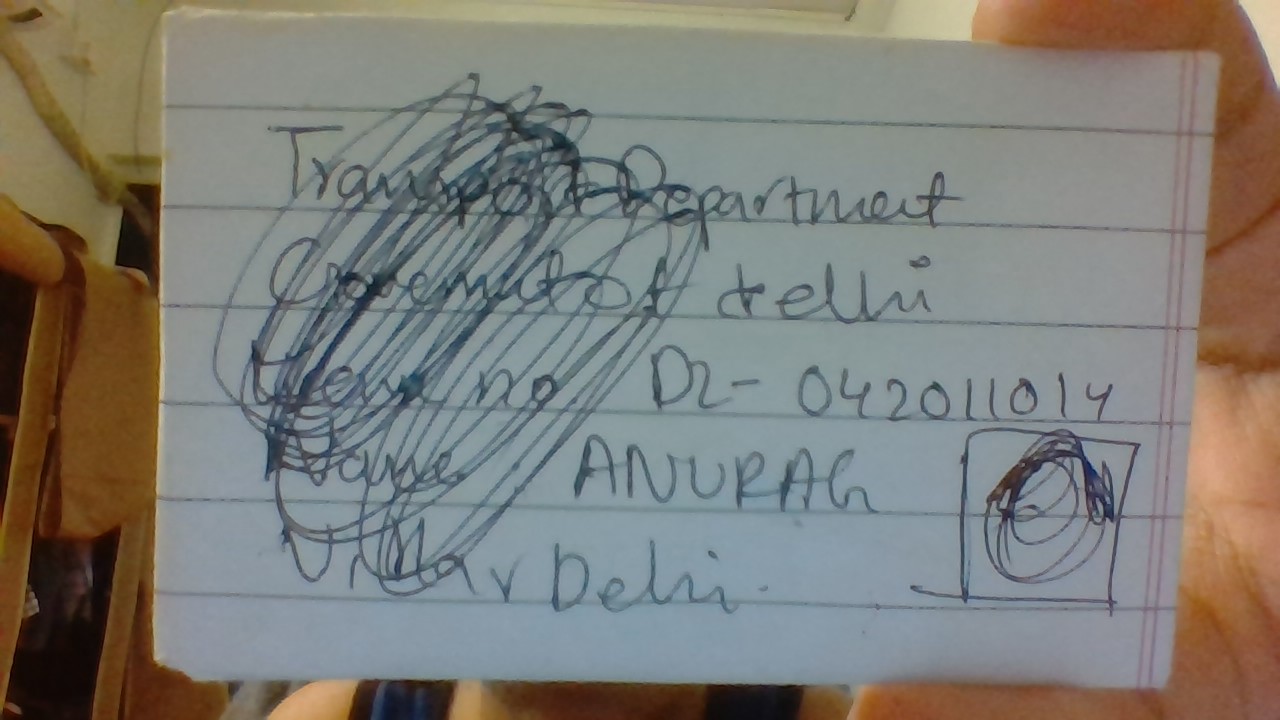 Transport Department
Govemnt of delhi
no. DL- 042011014
Name ANURAG
Delhi.